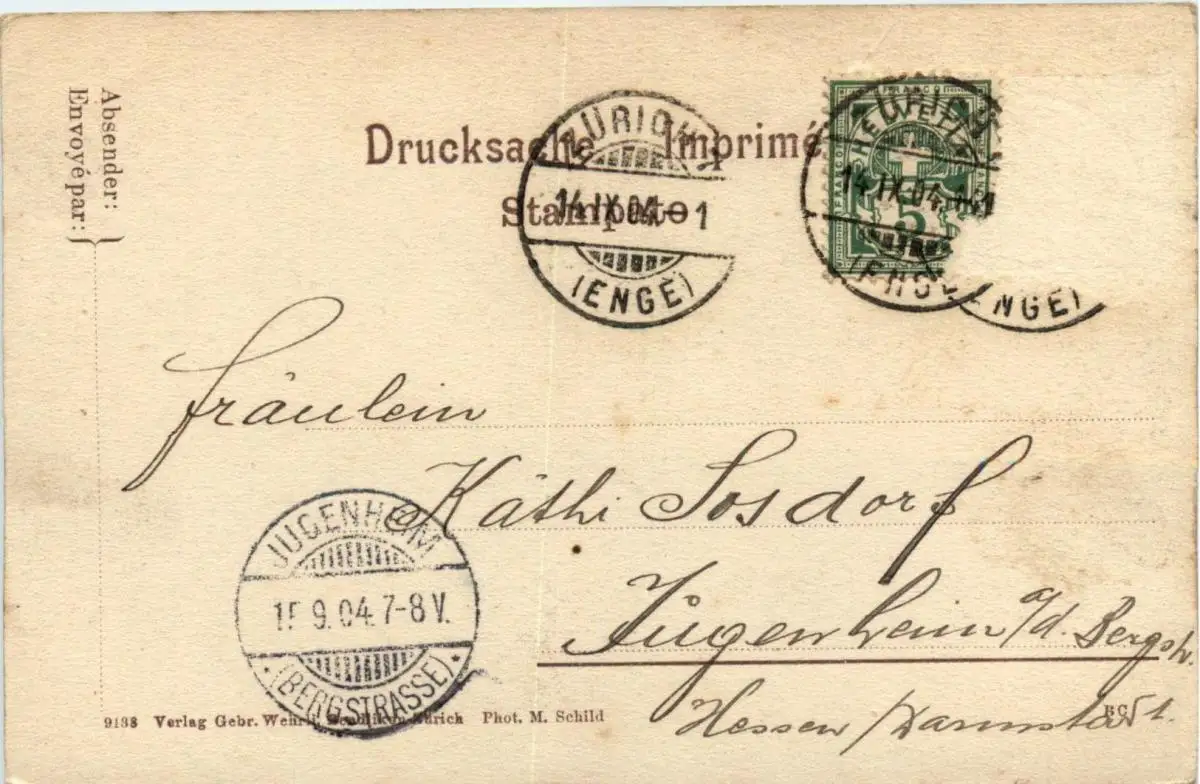 Absender:
Envoyé par:
Drucksache Imprimé
Stampato
ZÜRICH
14.IX.04.–1
(ENGE)
FRANCO
HELVETIA
5
ZÜRICH
14.IX.04.
(ENGE)
Fräulein
Käthi Sosdorf
Jugenheim a/d. Bergstr.
Hessen/Darmstadt.
JUGENHEIM
15 9.04. 7-8 V.
(BERGSTRASSE)
9138 Verlag Gebr. Wehrli, Zürich Phot. M. Schild